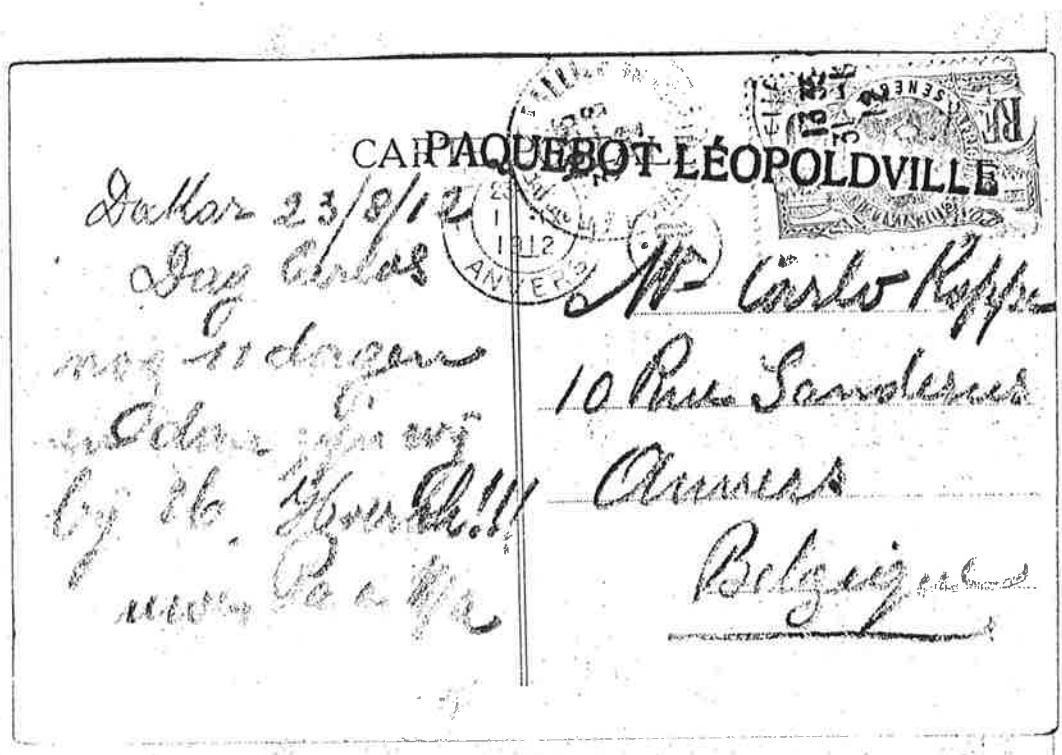 PAQUEBOT LÉOPOLDVILLE
SENEG
RF
1912
ANVERS
Dakar 23/8/12
Dag Carlos
nog 11 dagen
en dan zijn wij
by Hoerah!!!
uwen Pa
Mr Carlo
10 Rue Sanderus
Anvers
Belgique